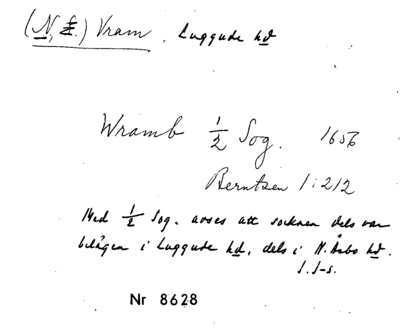 (N, E.) Vram, Luggude hd
Wramb 1/2 Sog. 1656
Berntsen 1:212
Med 1/2 Sog. avses att socknen dels var
belägen i Luggude hd, dels i N. Åsbo hd.
I.I-s.
Nr 8628